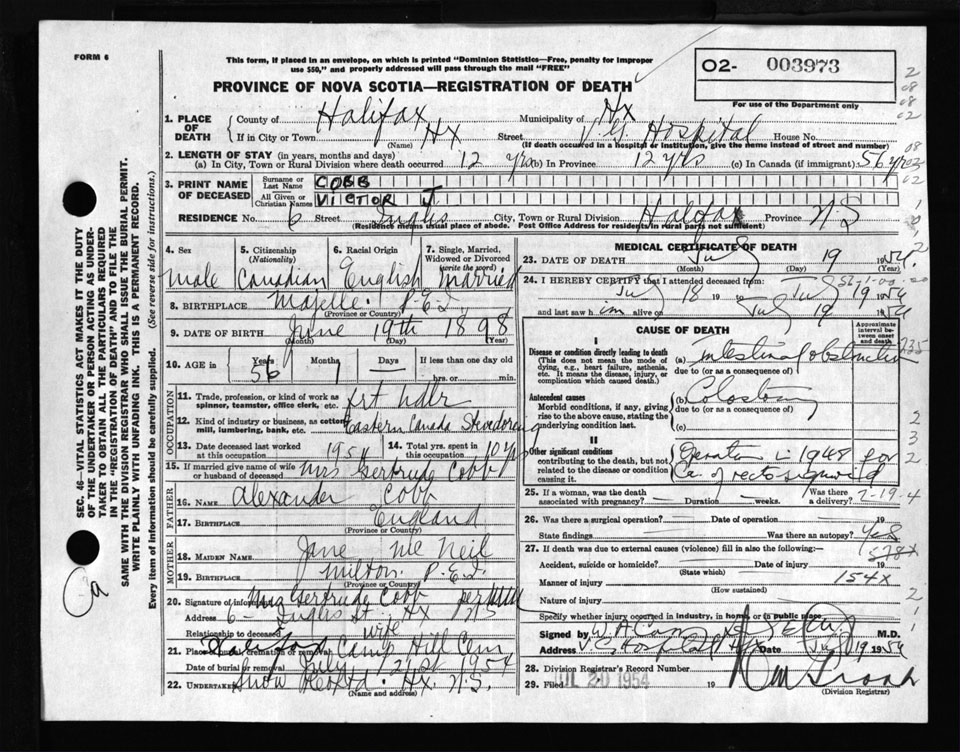 FORM 6
This form, if placed in an envelope, on which is printed "Dominion Statistics—Free, penalty for improper
use $50," and properly addressed will pass through the mail "FREE"
PROVINCE OF NOVA SCOTIA—REGISTRATION OF DEATH
O2- 003973
For use of the Department only
1. PLACE OF DEATH
County of Halifax Municipality of Hx
If in City or Town Hx Street V.G. Hospital House No.
(Name) (If death occurred in a hospital or institution, give the name instead of street and number)
2. LENGTH OF STAY (in years, months and days)
(a) In City, Town or Rural Division where death occurred 12 yrs (b) In Province 12 yrs (c) In Canada (if immigrant) 56 yrs
3. PRINT NAME OF DECEASED
Surname or Last Name COBB
All Given or Christian Names VICTOR J
RESIDENCE No. 6 Street Inglis City, Town or Rural Division Halifax Province N.S
(Residence means usual place of abode. Post Office Address for residents in rural parts not sufficient)
4. Sex 5. Citizenship (Nationality) 6. Racial Origin 7. Single, Married, Widowed or Divorced (write the word)
Male Canadian English Married
8. BIRTHPLACE P.E.I.
(Province or Country)
9. DATE OF BIRTH June 19th 1898
(Month) (Day) (Year)
10. AGE in Years Months Days If less than one day old
56 1 — hrs. or min.
OCCUPATION
11. Trade, profession, or kind of work as spinner, teamster, office clerk, etc. frt hdlr
12. Kind of industry or business, as cotton mill, lumbering, bank, etc. Eastern Canada Stevedoring
13. Date deceased last worked at this occupation 1954 14. Total yrs. spent in this occupation 10 yrs
15. If married give name of wife or husband of deceased Mrs Gertrude Cobb
FATHER
16. NAME Alexander Cobb
17. BIRTHPLACE England
(Province or Country)
MOTHER
18. MAIDEN NAME Jane McNeil
19. BIRTHPLACE Milton P.E.I.
(Province or Country)
20. Signature of informant Mrs Gertrude Cobb per
Address 6 — Inglis St. Hx N.S.
Relationship to deceased wife
21. Place of burial, cremation or removal Camp Hill Cem
Date of burial or removal July 21st 1954
22. UNDERTAKER Snow Hx. N.S.
(Name and address)
MEDICAL CERTIFICATE OF DEATH
23. DATE OF DEATH July 19 1954
(Month) (Day) (Year)
24. I HEREBY CERTIFY that I attended deceased from:
July 18 19 to July 19 1954
and last saw him alive on July 19 1954
CAUSE OF DEATH
Approximate interval between onset and death
I
Disease or condition directly leading to death (a) Intestinal obstruction
(This does not mean the mode of dying, e.g., heart failure, asthenia, etc. It means the disease, injury, or complication which caused death.)
due to (or as a consequence of)
Antecedent causes (b) Colostomy
Morbid conditions, if any, giving rise to the above cause, stating the underlying condition last.
due to (or as a consequence of)
(c)
II
Other significant conditions contributing to the death, but not related to the disease or condition causing it.
Operation in 1948 for
Ca. of rectosigmoid
25. If a woman, was the death associated with pregnancy? — Duration — weeks. Was there a delivery?
26. Was there a surgical operation? — Date of operation — 19
State findings Was there an autopsy? yes
27. If death was due to external causes (violence) fill in also the following:—
Accident, suicide or homicide? Date of injury 19
(State which)
Manner of injury 154X
(How sustained)
Nature of injury
Specify whether injury occurred in industry, in home, or in public place
Signed by M.D.
Address V.G. Hospital Hx Date July 19 1954
28. Division Registrar's Record Number
29. Filed JUL 20 1954 19
(Division Registrar)
SEC. 46—VITAL STATISTICS ACT MAKES IT THE DUTY
OF THE UNDERTAKER OR PERSON ACTING AS UNDER-
TAKER TO OBTAIN ALL THE PARTICULARS REQUIRED
IN THE "REGISTRATION OF DEATH" AND TO FILE THE
SAME WITH THE DIVISION REGISTRAR WHO SHALL ISSUE THE BURIAL PERMIT.
WRITE PLAINLY WITH UNFADING INK. THIS IS A PERMANENT RECORD.
Every item of information should be carefully supplied. (See reverse side for instructions.)